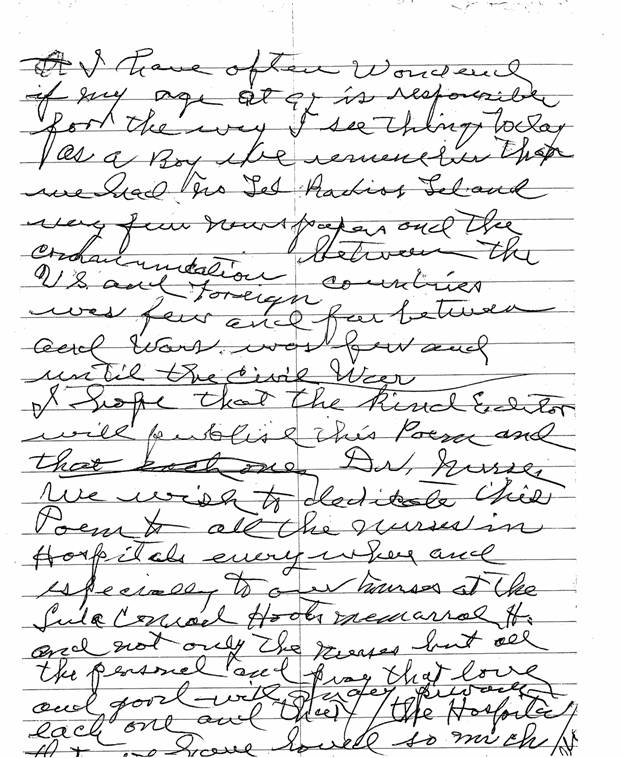 I have often Wonderd
if my age at 92 is responsible
for the way I see things today
as a Boy we remember that
we had no Tel Radios Tel and
very few newspapers and the
communication between the
U.S. and Foreign countries
was few and far between
and Wars was few and
until the Civil War
I hope that the Kind Editor
will publish this Poem and
that each one Dr, Nurses
We wish to dedicate this
Poem to all the nurses in
Hospitals everywhere and
especially to our nurses at the
Lula Conrad Hoots memorral H.
and not only the nurses but all
the personel and pray that love
and good will may
each one and that the Hospital
that we have loved so much